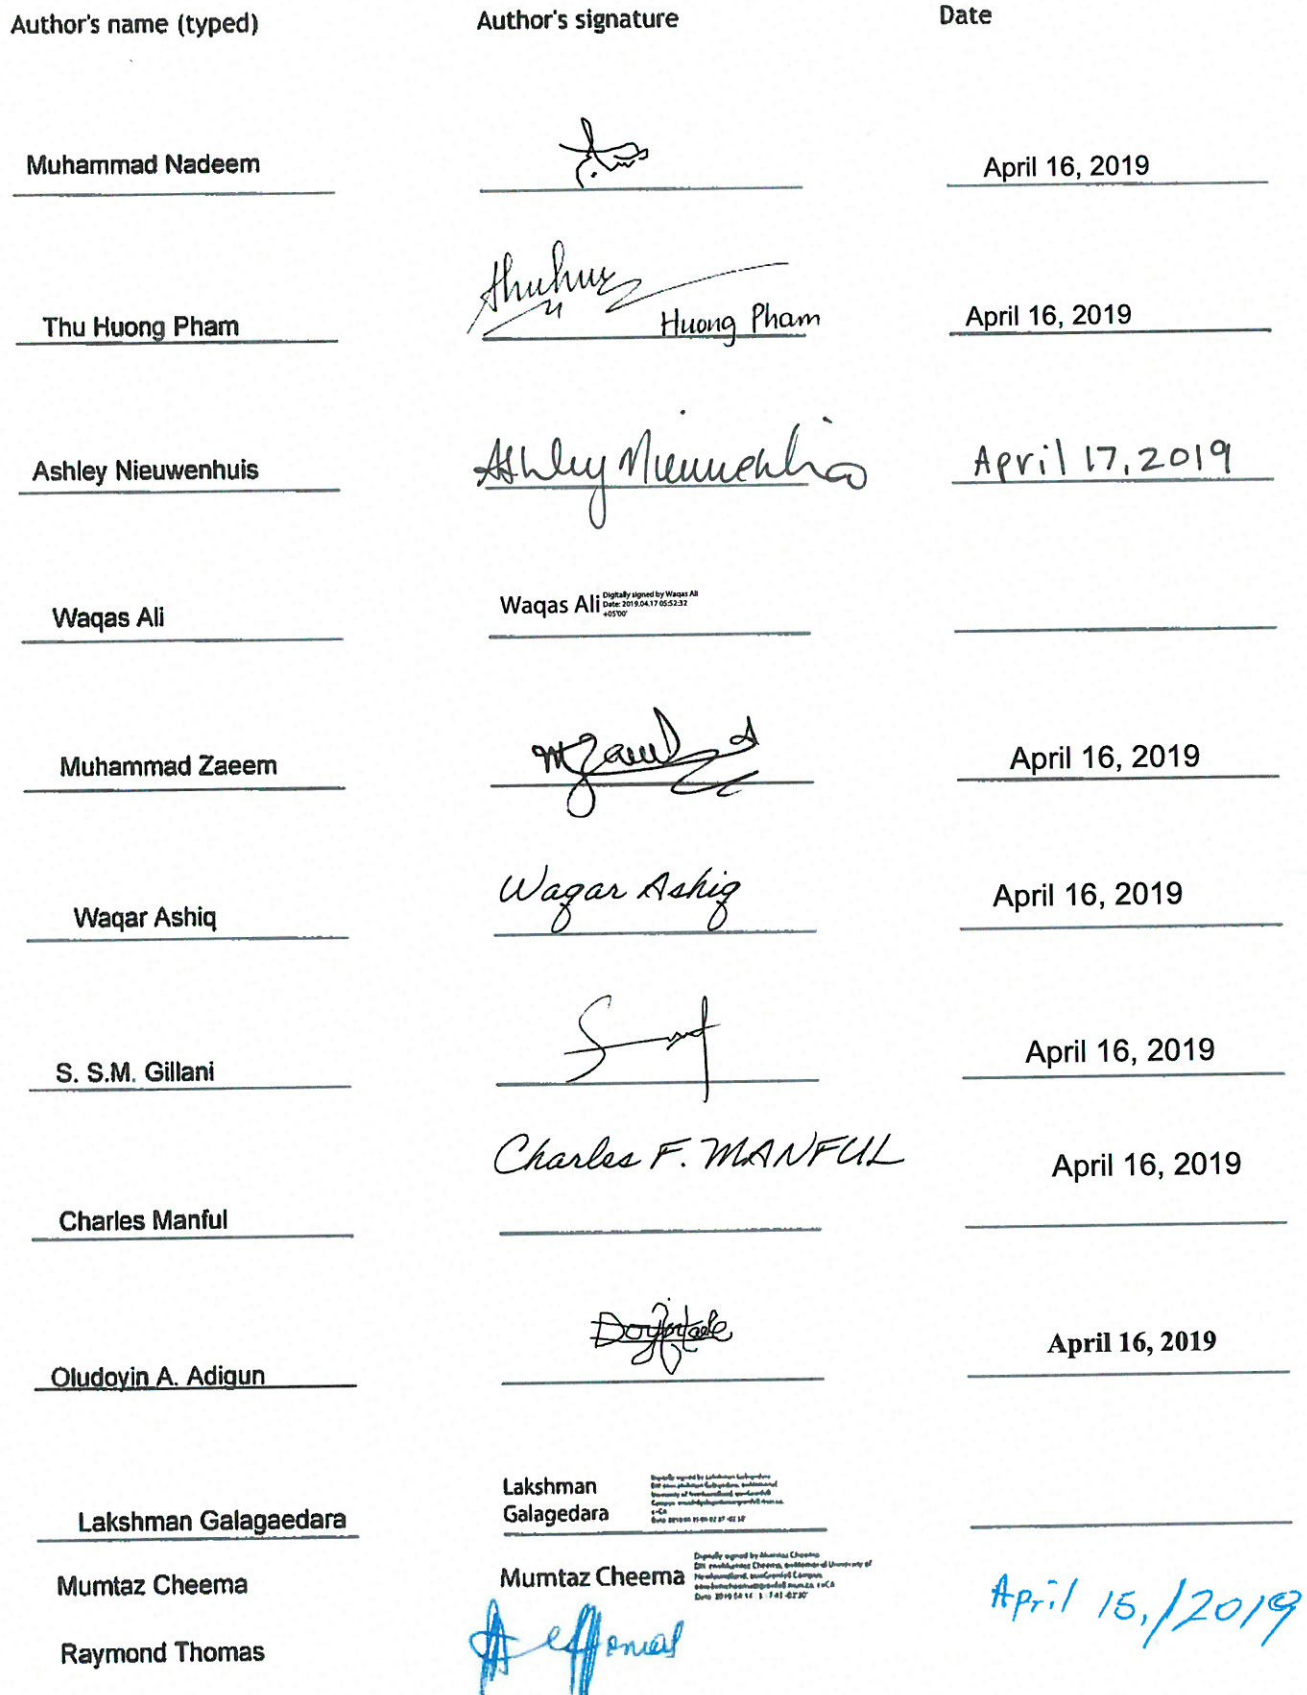 Author's name (typed) Author's signature Date
Muhammad Nadeem April 16, 2019
Thu Huong Pham Huong Pham April 16, 2019
Ashley Nieuwenhuis Ashley Nieuwenhuis April 17, 2019
Waqas Ali Waqas Ali Digitally signed by Waqas Ali
Date: 2019.04.17 05:52:32
+05'00'
Muhammad Zaeem April 16, 2019
Waqar Ashiq Waqar Ashiq April 16, 2019
S. S.M. Gillani April 16, 2019
Charles F. MANFUL April 16, 2019
Charles Manful
Oludoyin A. Adigun April 16, 2019
Lakshman
Galagedara
Lakshman Galagaedara
Mumtaz Cheema Mumtaz Cheema Digitally signed by Mumtaz Cheema
April 15,/2019
Raymond Thomas